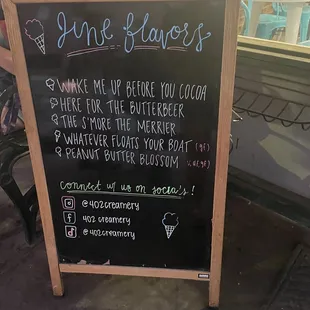 June flavors
WAKE ME UP BEFORE YOU COCOA
HERE FOR THE BUTTERBEER
THE S'MORE THE MERRIER
WHATEVER FLOATS YOUR BOAT (GF)
PEANUT BUTTER BLOSSOM (GF)
connect w/ us on socia's!
@402creamery
402 creamery
@402creamery